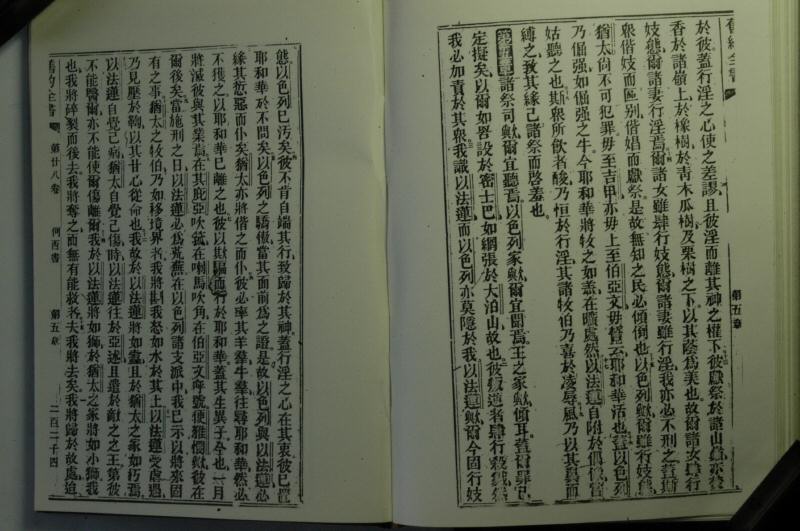 舊約全書
第五章
於彼蓋行淫之心使之差謬且彼淫而離其神之權下彼獻祭於諸山
香於諸嶺上於橡樹於青木瓜樹及栗樹之下以其蔭為美也故爾諸女
妓態爾諸妻行淫焉爾諸女雖肆行妓態爾諸妻雖行淫我亦必不刑之蓋
眾偕妓而區別偕娼而獻祭是故無知之民必傾倒也以色列歟爾雖行妓
猶太尚不可犯罪毋至吉甲亦毋上至伯亞文毋誓云耶和華活也蓋以色列
乃倔强如倔强之牛今耶和華將牧之如羔在曠處然以法蓮自附於偶像
姑聽之也斯眾所飲者酸乃恒於行淫其諸牧伯乃喜於凌辱風乃以其翼而
縛之致其緣己諸祭而啓羞也
諸祭司歟爾宜聽焉以色列家歟爾宜聞焉王之家歟傾耳蓋
定擬矣以爾如罟設於密士巴如網張於大泊山故也彼
我必加責於其眾我識以法蓮而以色列亦莫隱於我以法蓮歟爾今固行妓
態以色列已汚矣彼不肯自端其行致歸於其神蓋行淫之心在其衷彼已
耶和華於不問矣以色列之驕傲當其面前為之證是故以色列與以法蓮必
緣其愆惡而仆矣猶太亦將偕之而仆彼必率其羊羣牛羣往尋耶和華然必
不獲之以耶和華已離之也彼以欺騙而行於耶和華蓋其生異子今也一月
將滅彼與其業焉在其庇亞吹號在喇馬吹角在伯亞文呼號便雅憫歟彼在
爾後矣當施刑之日以法蓮必為荒蕪在以色列諸支派中我已示以將來固
有之事猶太之牧伯乃如移境界者我將斟我怒如水於其上以法蓮受虐遇
乃見壓於鞫以其甘心從命也我故於以法蓮將如蠹且於猶太之家如朽焉
以法蓮自覺己病猶太自覺己傷時以法蓮往於亞述且遣於敵之之王第彼
不能醫爾亦不能使爾傷離爾我於以法蓮將如獅於猶太之家將如小獅我
也我將碎裂而後去我將奪之而無有能救者夫我將去矣我將歸於故處迨
舊約全書
第廿八卷
何西書
第五章
二百二十四